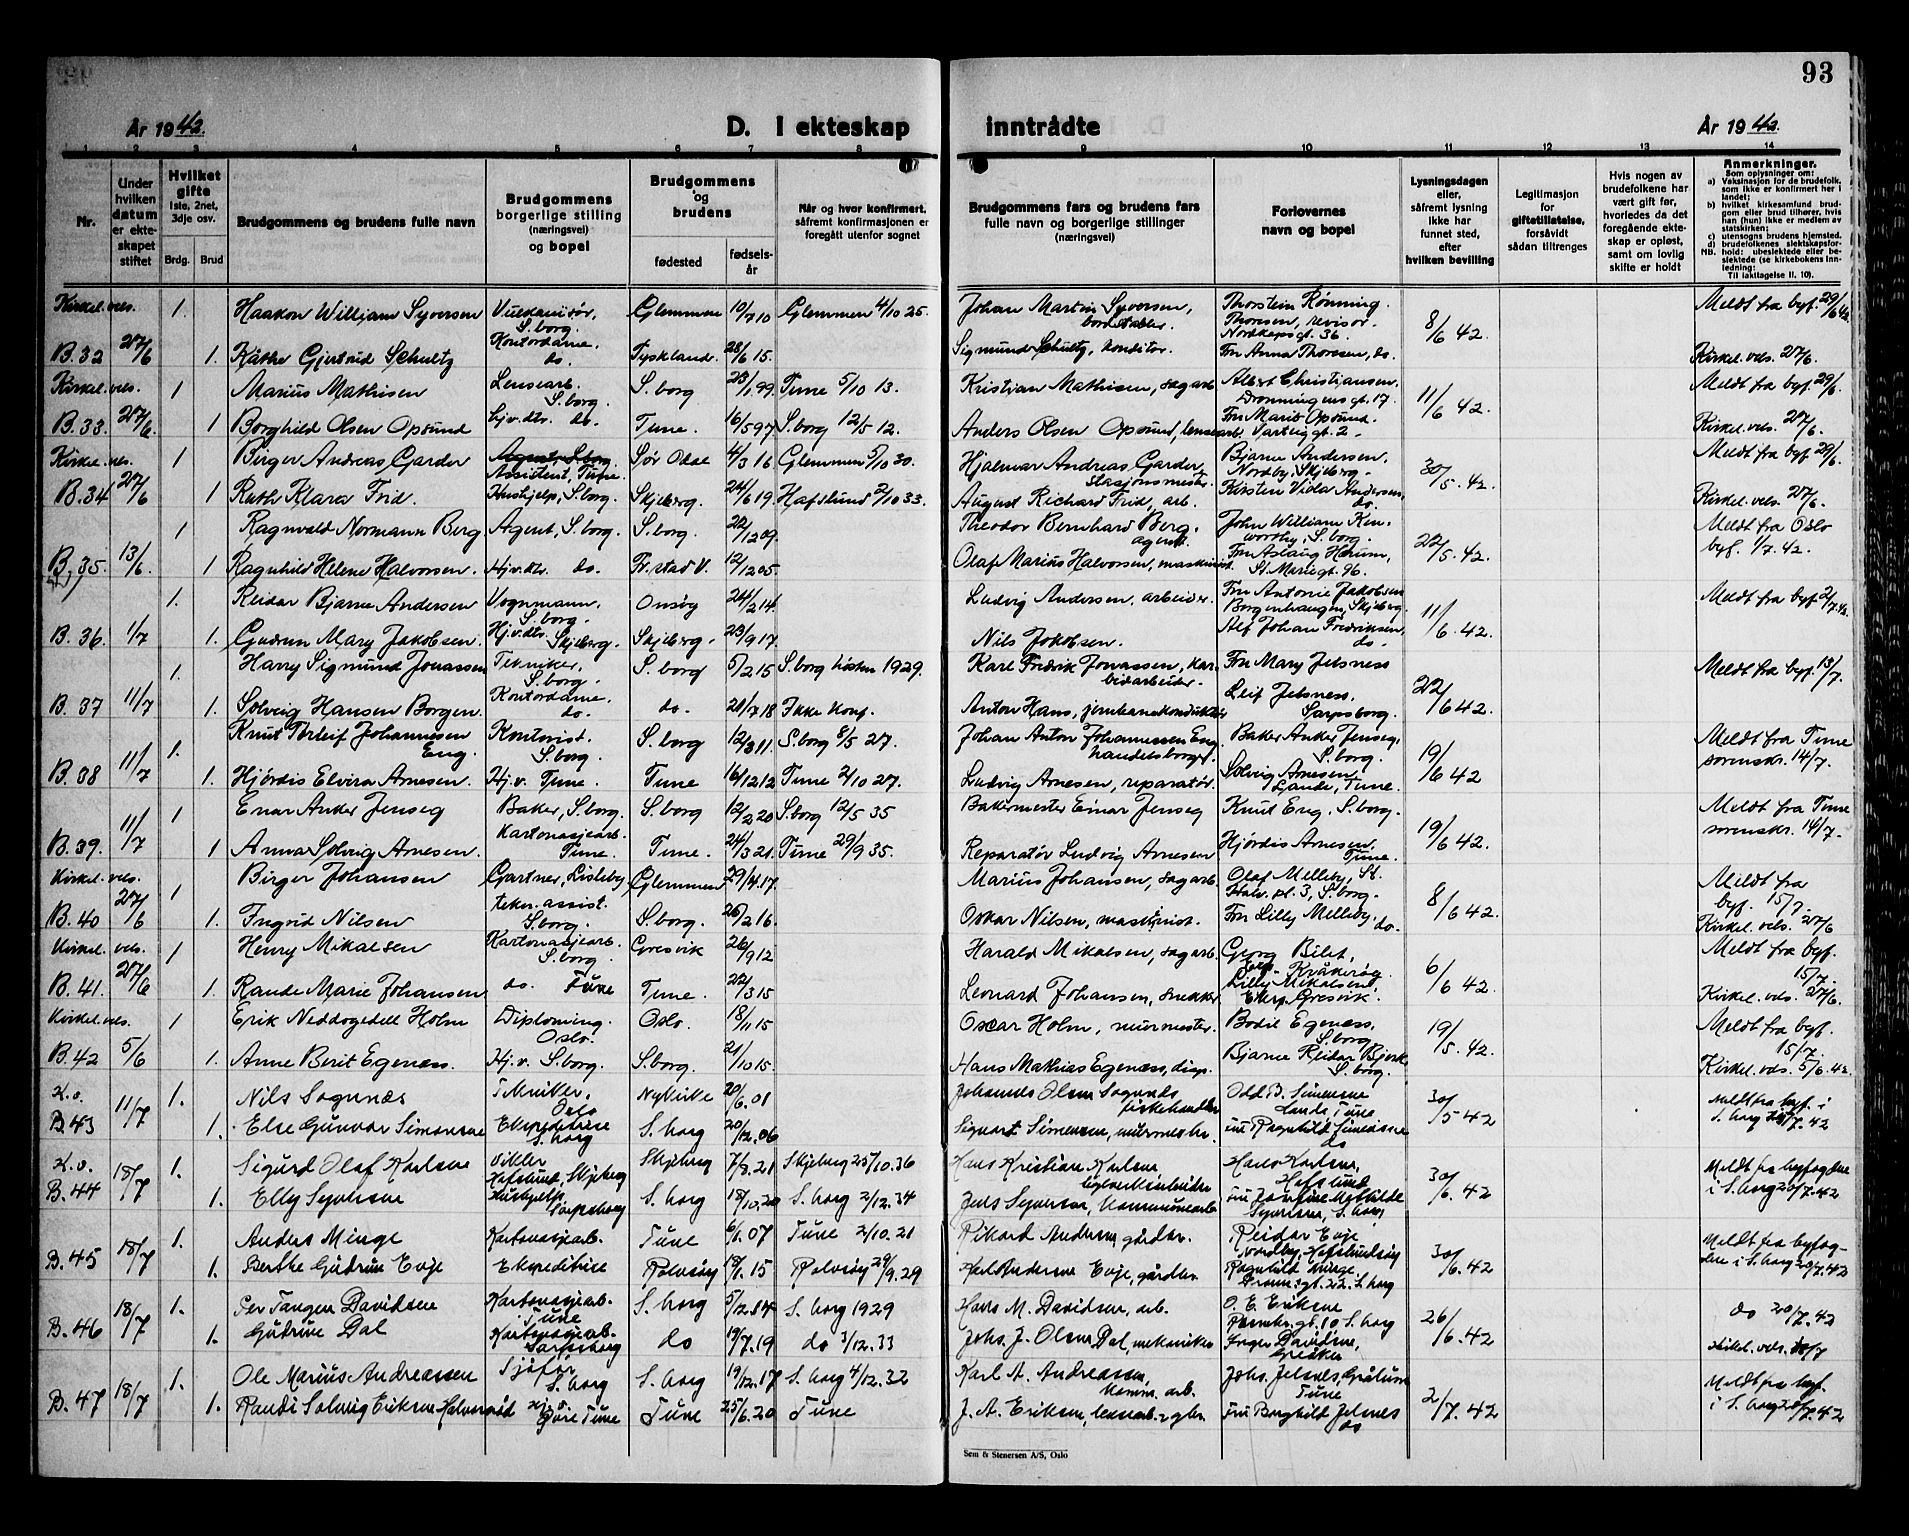 93
År 1942.
D. I ekteskap inntrådte
År 1942.
1 2 3 4 5 6 7 8 9 10 11 12 13 14
Nr.
Under hvilken datum er ekteskapet stiftet
Hvilket gifte 1ste, 2net, 3dje osv.
Brdg. Brud
Brudgommens og brudens fulle navn
Brudgommens borgerlige stilling (næringsvei) og bopel
Brudgommens og brudens
fødested
fødselsår
Når og hvor konfirmert, såfremt konfirmasjonen er foregått utenfor sognet
Brudgommens fars og brudens fars fulle navn og borgerlige stillinger (næringsvei)
Forlovernes navn og bopel
Lysningsdagen eller, såfremt lysning ikke har funnet sted, efter hvilken bevilling
Legitimasjon for giftetillatelse, forsåvidt sådan tiltrenges
Hvis nogen av brudefolkene har vært gift før, hvorledes da det foregående ekteskap er opløst, samt om lovlig skifte er holdt
Anmerkninger.
Som oplysning om:
a) Vaksinasjon for de brudefolk, som ikke er konfirmert her i landet;
b) hvilket kirkesamfund brudgom eller brud tilhører, hvis han (hun) ikke er medlem av statskirken;
c) utensogns brudens hjemsted.
d) brudefolkenes slektskapsforhold: ubeslektede eller beslektede (se kirkebokens innledning:
NB. Til iakttagelse II. 10).
Kirkel. vels. 1. Haakon William Syversen S.borg. Glemmen 10/7 10 Glemmen 4/10 25. Johan Martin Syversen, Thorstein Rønning. Thoresen, revisor. Nordkapsgt. 36. 8/6 42. Meldt fra byf. 29/6 42
B. 32 27/6 1. Käthe Gjertrud Schultz Kontordame. do. Tyskland. 28/6 15. Sigmund Schultz, konditor. Fru Anna Thoresen, do. Kirkel. vels. 27/6.
Kirkel. vels. 1 Marius Mathisen Lensearb. S.borg. S.borg 23/1 99 Tune 5/10 13. Kristian Mathisen, sagarb. Albert Christiansen. Dronningensgt. 17. 11/6 42. Meldt fra byf. 29/6.
B. 33. 27/6. 1 Borghild Olsen Opsund Hj.v.dtr. do. Tune. 16/5 97 S.borg 12/5 12. Anders Olsen Opsund, lensearb. Fru Marit Opsund. Varteiggt. 2 Kirkel. vels. 27/6.
Kirkel. vels. 1 Birger Andreas Garder Assistent, Tune. Sør Odal 4/3 16 Glemmen 5/10 30. Hjalmar Andreas Garder, Stasjonsmester. Bjarne Andersen. Nordby, Skjeberg. 30/5. 42. Meldt fra byf. 29/6.
B. 34 27/6 1 Ruth Klara Frid. Hushjelp, S.borg. Skjeberg. 24/6 19. Hafslund 2/10 33. August Richard Frid, arb. Kirsten Vida Andersen, do. Kirkel. vels. 27/6.
1 Ragnvald Normann Berg. Agent, S.borg. S.borg. 22/12 09. Theodor Bernhard Berg, agent. John William Kenworthy, S.borg. 22/5. 42. Meldt fra Oslo byf. 1/7. 42.
B. 35. 13/6. 1 Ragnhild Helene Halvorsen. Hj.v.dtr. do. Fr.stad V. 12/12 05. Olaf Marius Halvorsen, maskinist. Fru Aslaug Herum, St. Mariegt. 96.
1. Reidar Bjarne Andersen Vognmann, S.borg. Onsøy 24/2 14. Ludvig Andersen, arbeider. Fru Antonie Jakobsen Borgenhaugen, Skjeberg. 11/6. 42. Meldt fra byf. 2/7. 42.
B. 36. 1/7 1. Gudrun Mary Jakobsen. Hj.v.dtr. Skjeberg. Skjeberg. 23/9 17. Nils Jakobsen. Alf Johan Fredriksen, do.
1. Harry Sigmund Jonassen Tekniker, S.borg. S.borg 5/2 15 S.borg høsten 1929. Karl Fredrik Jonassen, karbidarbeider. Fru Mary Jelsness 22/6 42. Meldt fra byf. 13/7.
B. 37 11/7 1. Solveig Hansen Borgen. Kontordame. do. do. 21/7 18 Ikke konf. Anton Hans, jernbanekonduktør Leif Jelsness, Sarpsborg.
1. Knut Torleif Johannesen Eng. Kontorist. S.borg. S.borg 12/3 11. S.borg 8/5 27. Johan Anton Johannessen Eng, handelsborger. Baker Anker Jenseg, S.borg. 19/6 42 Meldt fra Tune sorenskr. 14/7.
B. 38 11/7 1. Hjördis Elvira Arnesen. Hj.v. Tune. Tune 16/12 12 Tune 2/10 27. Ludvig Arnesen, reparatör. Solveig Arnesen, Lande, Tune.
1 Einar Anker Jenseg Baker, S.borg. S.borg 12/2 20 S.borg 12/5 35 Bakermester Einar Jenseg Knut Eng, S.borg. 19/6 42. Meldt fra Tune sorenskr. 14/7.
B. 39. 11/7 1 Anna Solveig Arnesen. Kartonasjearb. Tune. Tune. 24/3 21. Tune 29/9 35. Reparatör Ludvig Arnesen Hjördis Arnesen, Tune.
Kirkel. vels. 1 Birger Johansen Gartner, Lisleby Glemmen 29/4 17. Marius Johansen, sagarb. Olaf Melleby, St. Halv. pl. 3, S.borg. 8/6 42. Meldt fra byf. 15/7.
B. 40 27/6 1. Ingrid Nilsen assist. S.borg. S.borg. 26/2 16. Oskar Nilsen, maskinist. Fru Lilly Melleby, do. Kirkel. vels. 27/6
Kirkel. vels. 1 Henry Mikalsen Kartonasjearb. S.borg. Gresvik 26/9 12 Harald Mikalsen, sagarb. Georg Bilet, Kråkerøy. 6/6 42. Meldt fra byf. 15/7.
B. 41. 27/6 1. Rande Marie Johansen do. Tune Tune. 22/3 15 Leonard Johansen, snekker Lilly Mikalsen, Gresvik. Kirkel. vels. 27/6.
Kirkel. vels. 1 Erik Neddogedell Holm Diploming. Oslo. Oslo. 18/11 15 Oscar Holm, murmester. Bodil Egeness, S.borg 19/5. 42. Meldt fra byf. 15/7.
B. 42 5/6 1. Anne Berit Egenæss. Hj.v. S.borg. S.borg. 21/10 15 Hans Mathias Egenæss, disp. Bjarne Reidar Bjerk S.borg. Kirkel. vels. 5/6. 42.
K.v. 1. Nils Sognnæs Tekniker, Oslo 20/6. 01 Johannes Olsen Sognnes fiskehandler Odd B. Simensen Lande Tune 30/5 42 Meldt fra byf. i S.borg 20/7. 42
B. 43 11/7 1. Else Gunvor Simensen Ekspeditrise S.borg S.borg 20/12. 06 Sigvart Simensen, murmester. Fru Ragnhild Simensen do
K.v. 1. Sigurd Olaf Karlsen Vikler Hafslund, Skjeberg Skjeberg 7/8. 21 Skjeberg 25/10. 36 Hans Kristian Karlsen Hans Karlsen, Hafslund 30/6. 42 Meldt fra byfogden i S.borg 20/7. 42
B. 44 18/7 1. Elly Syversen Hushjelp, Sarpsborg S.borg 18/10. 20 S.borg 2/12. 34 Jens Syversen, Kommunearb. Fru Josefine Mathilde Syversen, S.borg
1. Anders Minge Kartonasjearb. Tune 6/1. 07 Tune 2/10. 21 Rikard Andersen, gårdbr. Reidar Evje Nordby, Hafslundsøy 30/6. 42 Meldt fra byfogden i S.borg 20/7. 42
B. 45 18/7 1. Berthe Gudrun Evje Ekspeditrise Rolvsøy 18/1. 15 Rolvsøy 29/9. 29 Karl Andersen Evje, gårdbr. Ragnhild Minge, S.borg
1. Per Tangen Davidsen Kartonasjearb. Tune S.borg 5/12. 14 S.borg 1929 Hans M. Davidsen, arb. O. E. Eriksen S.borg 26/6. 42 do 20/7. 42
B. 46 18/7 1. Gudrun Dal Kartonasjearb. Sarpsborg do 19/7. 19 do 3/12. 33 Johs. J. Olsen Dal, mekaniker Inger Davidsen, Greåker
1. Ole Marius Andreassen Sjåfør S.borg S.borg 19/12. 17 S.borg 4/12. 32 Karl A. Andreassen, komm. arb. Johs. Jelsnes, Grålum Tune 2/7. 42 Meldt fra byf. i S.borg 20/7. 42
B. 47 18/7 1. Randi Solveig Eriksen Halvorsrød Tune Tune 25/6. 20 Tune J. A. Eriksen, Fru Borghild Jelsnes do
Sem & Stenersen A/S, Oslo